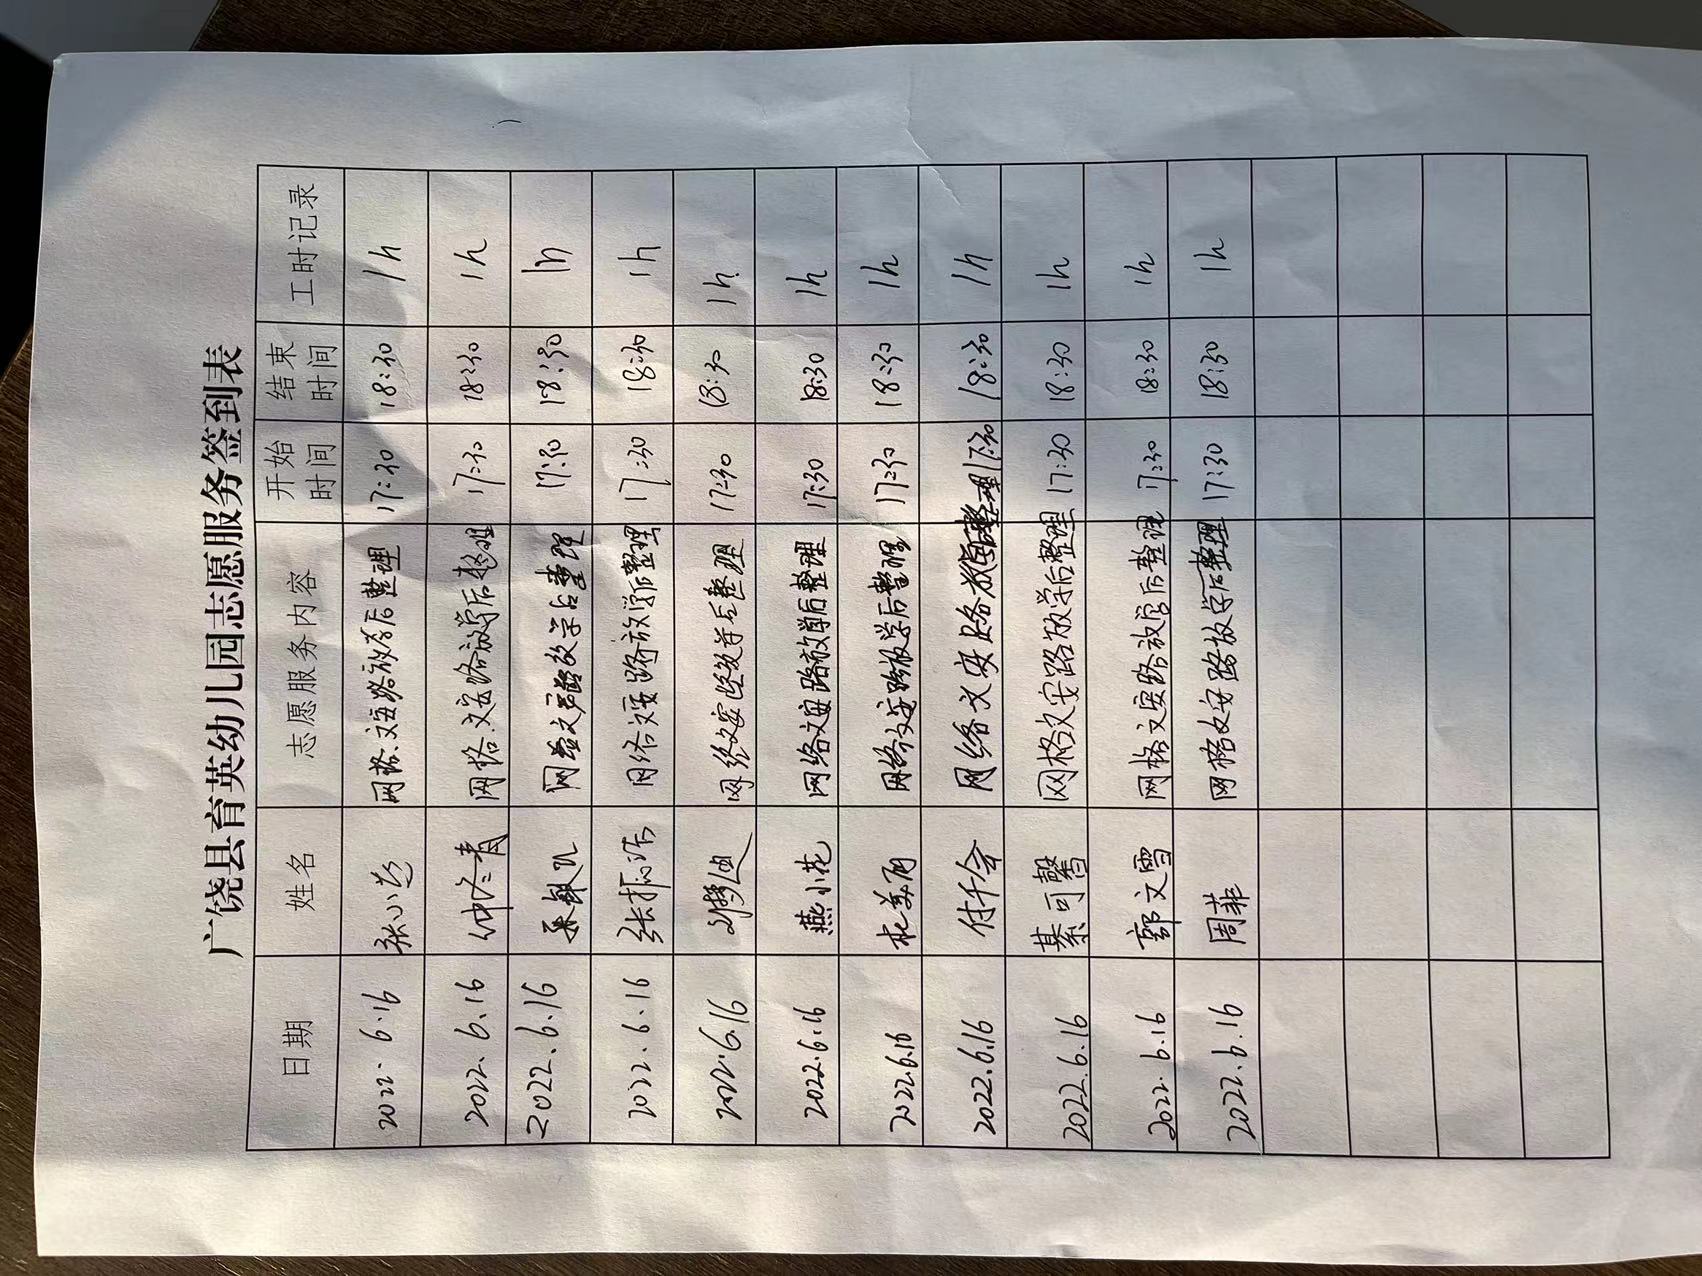 广饶县育英幼儿园志愿服务签到表
日期 姓名 志愿服务内容 开始时间 结束时间 工时记录
2022.6.16 张小芝 网格文安路放学后整理 17:30 18:30 1h
2022.6.16 仲冬青 网格.文安路放学后整理 17:30 18:30 1h
2022.6.16 网络文安路放学后整理 17:30 18:30 1h
2022.6.16 张振洁 网络文安路放学后整理 17:30 18:30 1h
2022.6.16 网络文安路放学后整理 17:30 18:30 1h
2022.6.16 燕小花 网络文安路放学后整理 17:30 18:30 1h
2022.6.16 杜美月 网络文安路放学后整理 17:30 18:30 1h
2022.6.16 付千会 网络文安路放学后整理 17:30 18:30 1h
2022.6.16 綦可馨 网格文安路放学后整理 17:30 18:30 1h
2022.6.16 郭文雪 网格文安路放学后整理 17:30 18:30 1h
2022.6.16 周菲 网格文安路放学后整理 17:30 18:30 1h